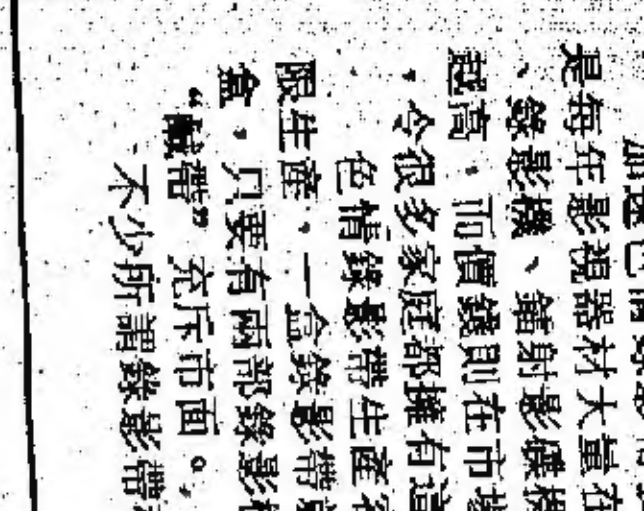 加速色情錄影
是每年影視器材大量在
、錄影機、鐳射影碟機
越高，而價錢則在市場
，令很多家庭都擁有這
色情錄影帶生產
限生產，一盒錄影帶
盒，只要有兩部錄影機
帶”充斥市面。
不少所謂錄影帶